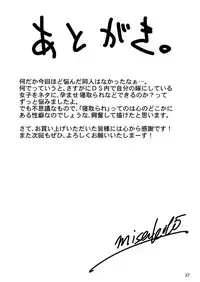 あとがき。
何だか今回ほど悩んだ同人はなかったなぁ…。
何でっていうと、さすがにＤＳ内で自分の嫁にしている
女子をネタに、孕ませ寝取られなどできるのか？って
ずっと悩みましたよ。
でも不思議なもので、「寝取られ」ってのは心のどこかに
ある性癖なのでしょうな、興奮して描けたと思います。
さて、お買い上げいただいた皆様には心から感謝です！
また次回もぜひ、よろしくお願いしたしまーす！
37